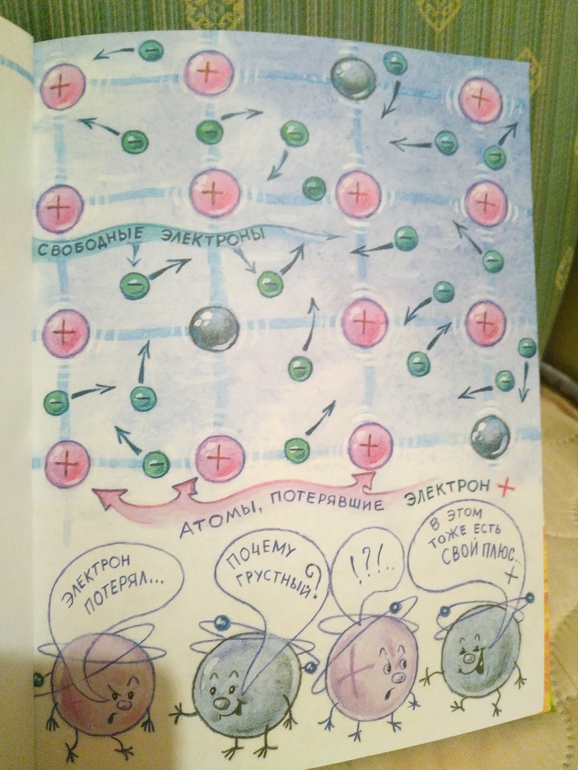 СВОБОДНЫЕ ЭЛЕКТРОНЫ
АТОМЫ, ПОТЕРЯВШИЕ ЭЛЕКТРОН +
ЭЛЕКТРОН
ПОТЕРЯЛ...
ПОЧЕМУ
ГРУСТНЫЙ?
!?!..
В ЭТОМ
ТОЖЕ ЕСТЬ
СВОЙ ПЛЮС...
+